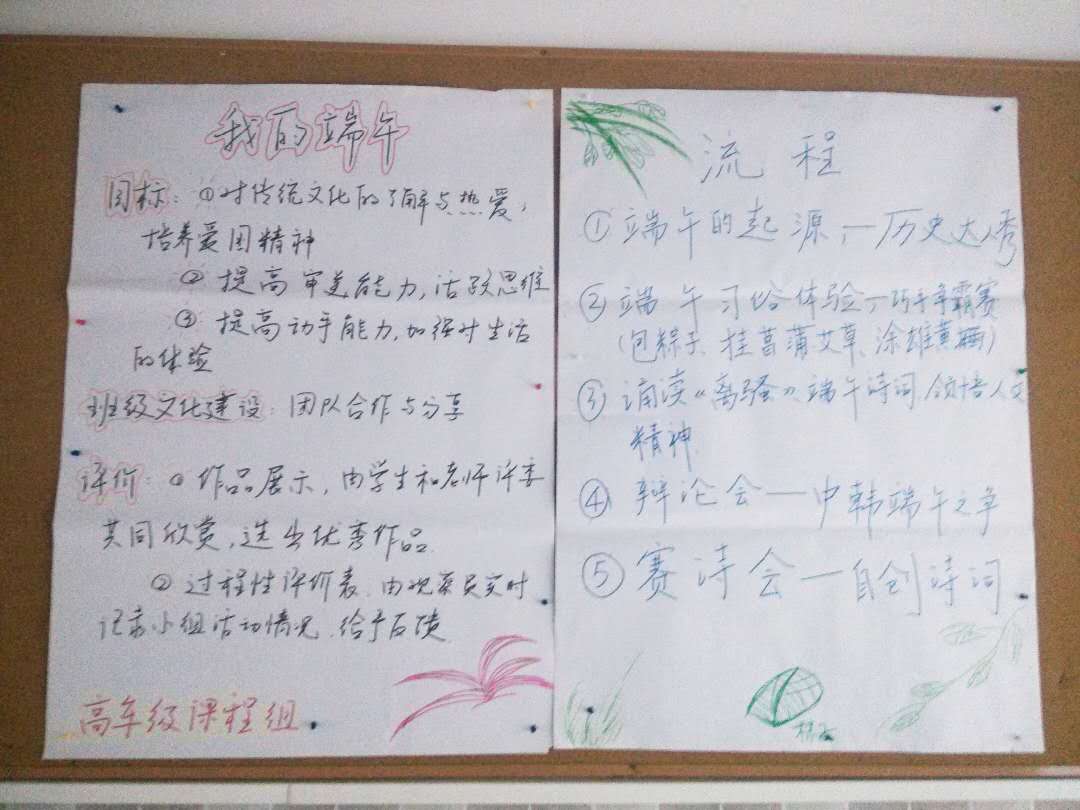 我的端午
目标：①对传统文化的了解与热爱，
培养爱国精神
②提高审美能力，活跃思维
③提高动手能力，加强对生活
的体验
班级文化建设：团队合作与分享
评价：①作品展示，由学生和老师评委
共同欣赏，选出优秀作品.
②过程性评价表，由观察员实时
记录小组活动情况，给予反馈.
高年级课程组
流程
①端午的起源—历史达人秀
②端午习俗体验—巧手争霸赛
（包粽子、挂菖蒲艾草、涂雄黄酒）
③诵读《离骚》端午诗词，领悟人文
精神.
④辩论会—中韩端午之争
⑤赛诗会—自创诗词